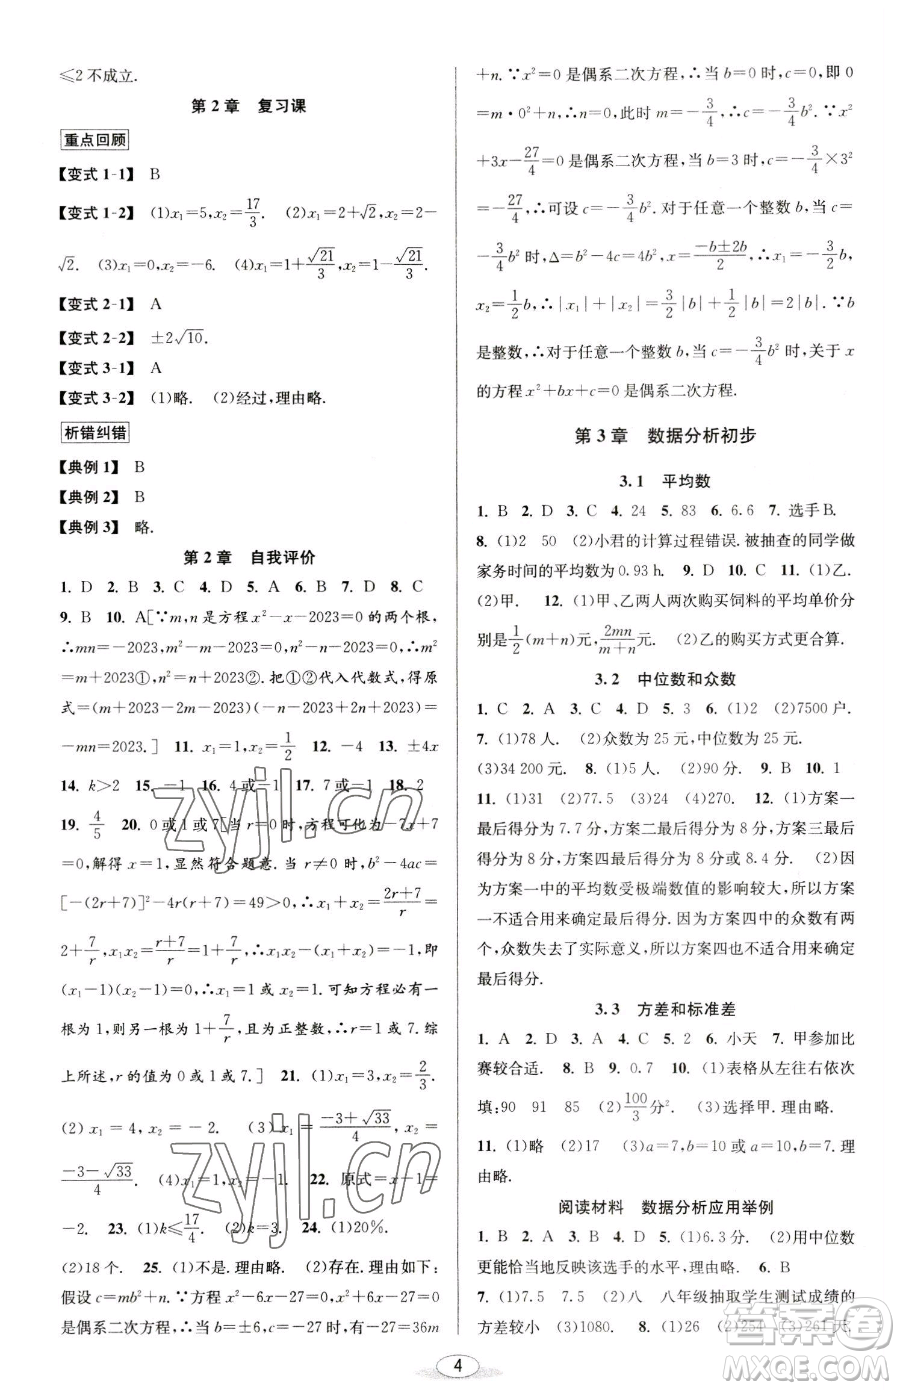 ≤2 不成立.
第 2 章　复习课
重点回顾
【变式 1-1】 B
【变式 1-2】 (1)x₁=5,x₂=17/3. (2)x₁=2+√2,x₂=2-
√2. (3)x₁=0,x₂=-6. (4)x₁=1+√21/3,x₂=1-√21/3.
【变式 2-1】 A
【变式 2-2】 ±2√10.
【变式 3-1】 A
【变式 3-2】 (1)略. (2)经过,理由略.
析错纠错
【典例 1】 B
【典例 2】 B
【典例 3】 略.
第 2 章　自我评价
1. D 2. B 3. C 4. D 5. A 6. B 7. D 8. C
9. B 10. A[∵m,n是方程x²-x-2023=0的两个根,
∴mn=-2023,m²-m-2023=0,n²-n-2023=0,∴m²
=m+2023①,n²=n+2023②.把①②代入代数式,得原
式=(m+2023-2m-2023)(-n-2023+2n+2023)=
-mn=2023.] 11. x₁=1,x₂=1/2 12. -4 13. ±4x
14. k>2 15. -1 16. 4 17. 3或-1 18. 2
19. 4/5 20. 0或1或7[当r=0时,方程可化为-7x+7
=0,解得x=1,显然符合题意.当r≠0时,b²-4ac=
[-(2r+7)]²-4r(r+7)=49>0,∴x₁+x₂=(2r+7)/r=
2+7/r,x₁x₂=(r+7)/r=1+7/r,∴x₁x₂-(x₁+x₂)=-1,即
(x₁-1)(x₂-1)=0,∴x₁=1,∴x₂=1+7/r.可知方程必有一
根为1,则另一根为1+7/r,且为正整数,∴r=1或7.综
上所述,r的值为0或1或7.] 21. (1)x₁=2,x₂=2/3.
(2)x₁=4,x₂=-2. (3)x₁=(-3+√33)/4,x₂=
(-3-√33)/4. (4)x₁=1,x₂=-1. 22. 原式=(x+1)/x=
-2. 23. (1)k≤17/4. (2)k=3. 24. (1)20%.
(2)18个. 25. (1)不是.理由略. (2)存在.理由如下:
假设c=mb²+n.∵x²-6x-27=0和x²+6x-27=0
是偶系二次方程,∴当b=±6,c=-27时,有-27=36m
+n.∵x²=0是偶系二次方程,∴当b=0时,c=0,即0
=m·0²+n,∴n=0,此时,m=-3/4,∴c=-3/4b².∵x²
+3x-27/4=0是偶系二次方程,当b=3时,c=-3/4×3²
=-27/4,∴可设c=-3/4b².对于任意一个整数b,当c=
-3/4b²时,Δ=b²-4c=4b²,∴x=(-b±2b)/2,∴x₁=-3/2b,
x₂=1/2b,∴|x₁|+|x₂|=3/2|b|+1/2|b|=2|b|.∵b
是整数,∴对于任意一个整数b,当c=-3/4b²时,关于x
的方程x²+bx+c=0是偶系二次方程.
第 3 章　数据分析初步
3.1　平均数
1. B 2. D 3. C 4. 24 5. 83 6. 6.6 7. 选手B.
8. (1)2 50 (2)小君的计算过程错误.被抽查的同学做
家务时间的平均数为0.93 h. 9. D 10. C 11. (1)乙.
(2)甲. 12. (1)甲、乙两人两次购买饲料的平均单价分
别是1/2(m+n)元、2mn/(m+n)元. (2)乙的购买方式更合算.
3.2　中位数和众数
1. C 2. A 3. D 4. D 5. 3 6. (1)2 (2)7500户.
7. (1)78人. (2)众数为25元,中位数为25元.
(3)34 200元. 8. (1)5人. (2)90分. 9. B 10. 1
11. (1)31 (2)77.5 (3)24 (4)270. 12. (1)方案一
最后得分为7.7分,方案二最后得分为8分,方案三最后
得分为8分,方案四最后得分为8分或8.4分. (2)因
为方案一中的平均数受极端数值的影响较大,所以方案
一不适合用来确定最后得分.因为方案四中的众数有两
个,众数失去了实际意义,所以方案四也不适合用来确定
最后得分.
3.3　方差和标准差
1. A 2. D 3. A 4. C 5. 2 6. 小天 7. 甲参加比
赛较合适. 8. B 9. 0.7 10. (1)表格从左往右依次
填:90 91 85 (2)100/3分² (3)选择甲.理由略.
11. (1)略 (2)17 (3)a=7,b=10或a=10,b=7.理
由略.
阅读材料　数据分析应用举例
1. B 2. A 3. C 4. D 5. (1)6.3分. (2)用中位数
更能恰当地反映该选手的大众形象.理由略. 6. B
7. (1)7.5 7.5 (2)八 八年级抽取学生测试成绩的
方差较小 (3)1080. 8. (1)26 (2)254 (3)261天.
4
zyjl.cn
zyjl.cn
作业答案
MXQE.COM